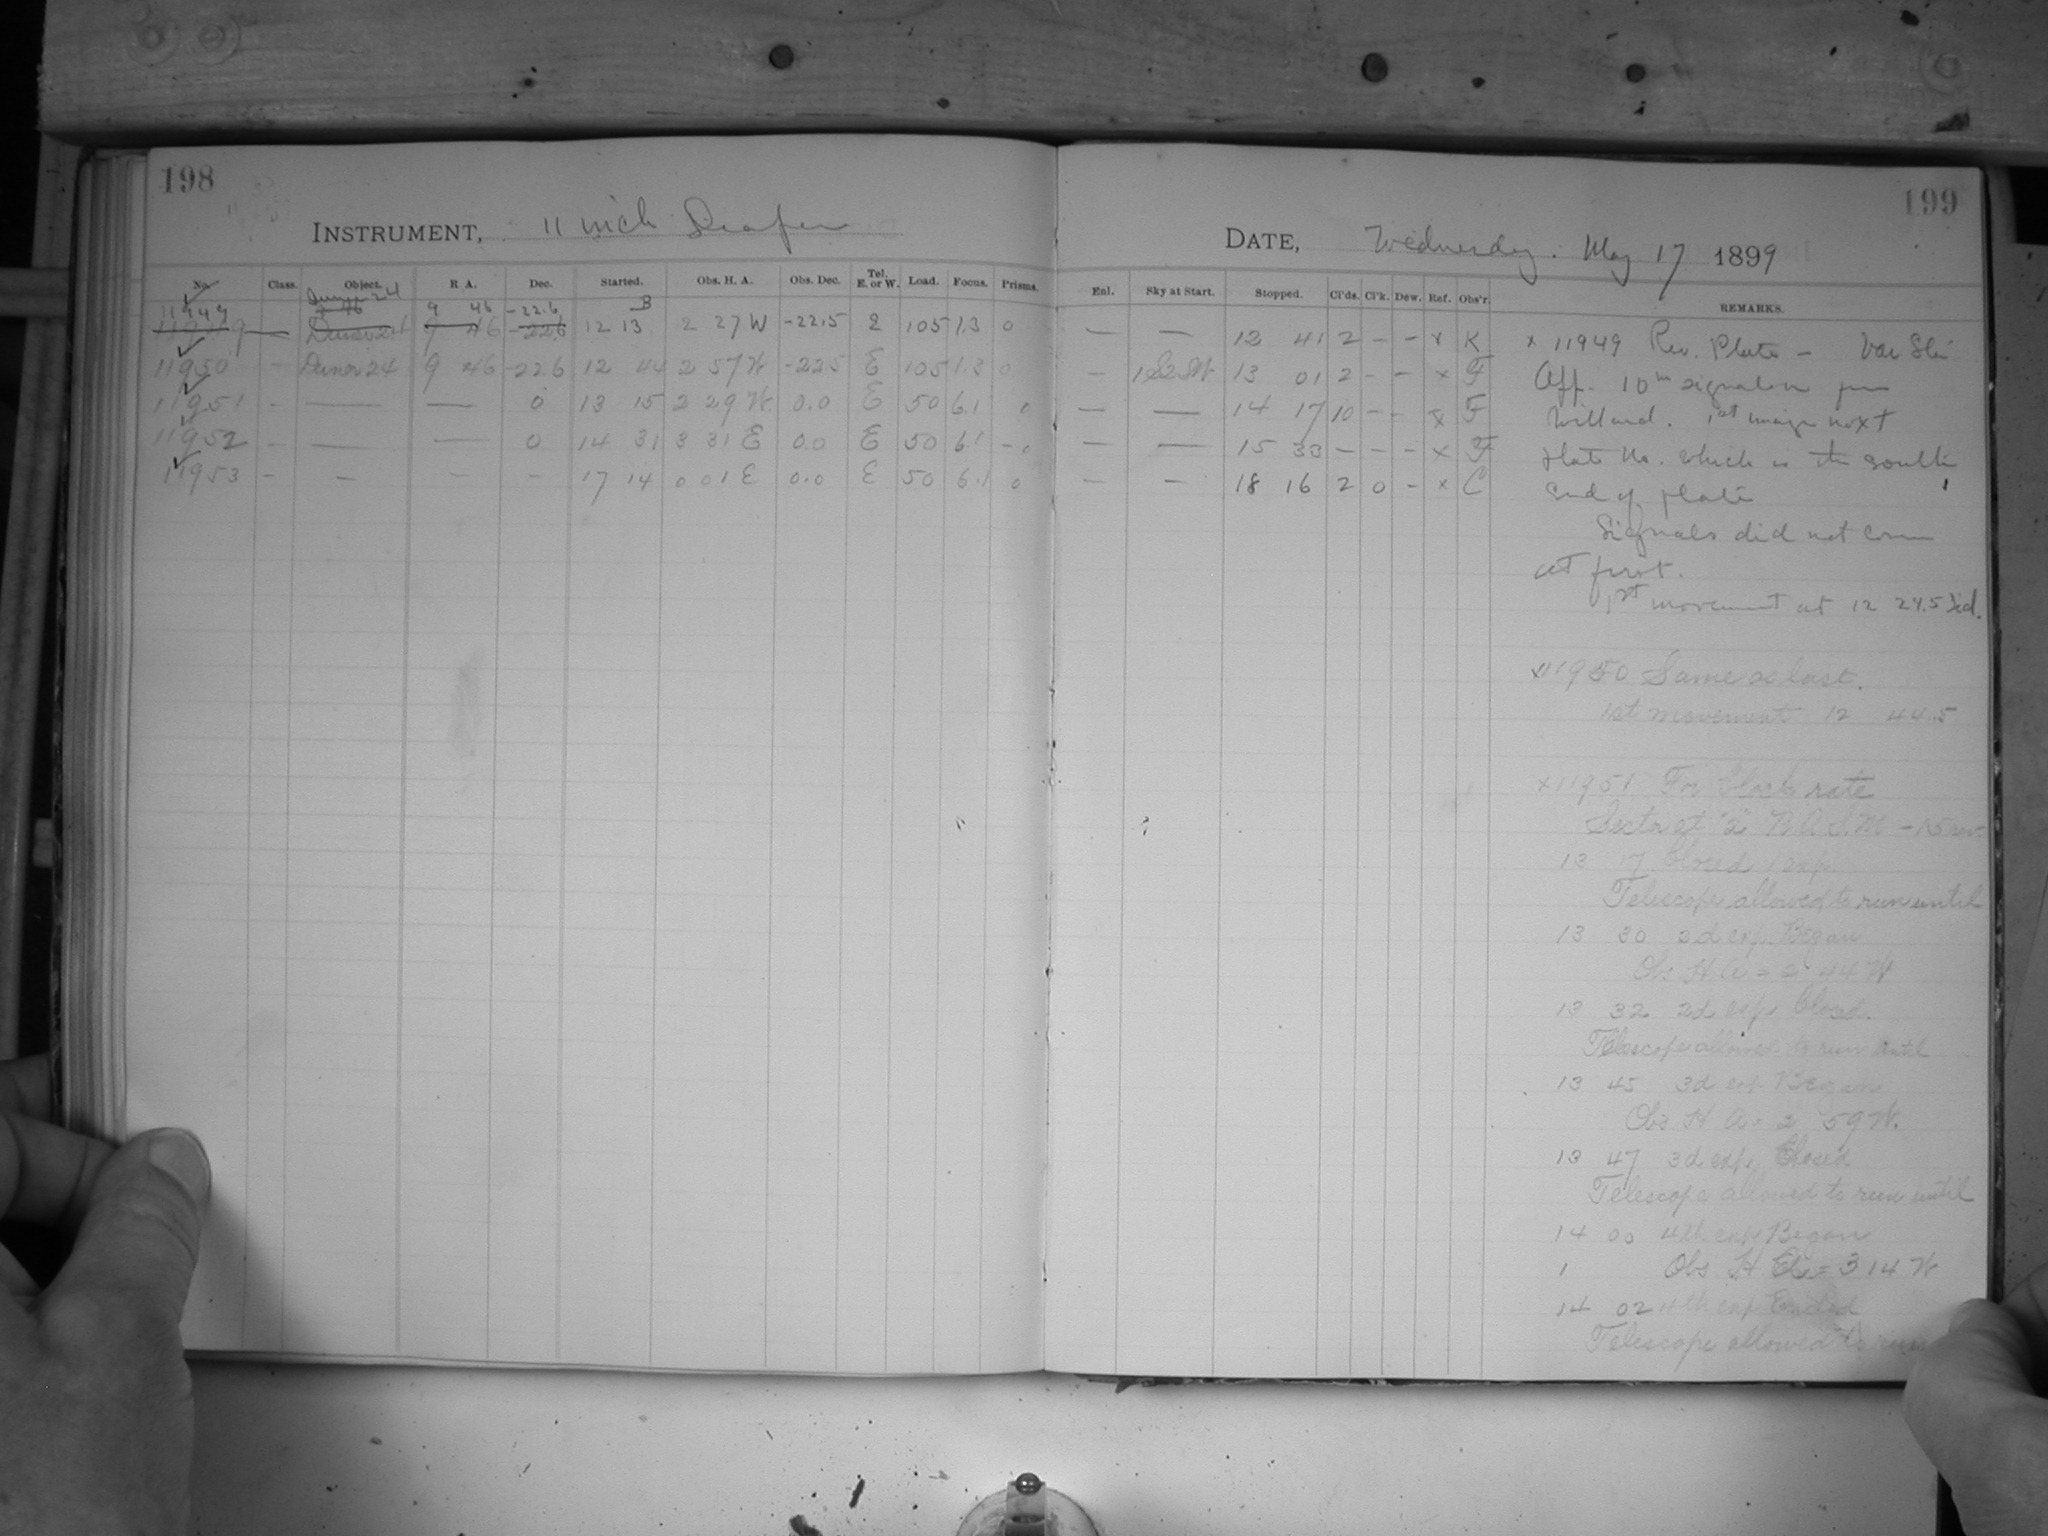 198
199
INSTRUMENT, 11 inch Draper
DATE, Wednesday. May 17 1899
No. Class. Object. R A. Dec. Started. Obs. H. A. Obs. Dec. Tel. E. or W. Load. Focus. Prisms. Enl. Sky at Start. Stopped. Cl'ds. Cl'k. Dew. Ref. Obs'r. REMARKS.
11949 24 9 46 -22.6
9 46 -22.6 12 13 2 27 W -22.5 E 105 1.3 0 — — 12 41 2 - - x K
11950 - 24 9 46 -22.6 12 44 2 57 W -22.5 E 105 1.3 0 — 13 01 2 - - x F
11951 - — — 0 13 15 2 29 W 0.0 E 50 6.1 0 — — 14 17 10 - - x F
11952 - — — 0 14 31 3 31 E 0.0 E 50 6.1 - 0 — — 15 33 - - - x F
11953 - - - - 17 14 0 01 E 0.0 E 50 6.1 0 — - 18 16 2 0 - x C
x 11949 Rev. Plate — Var Sli
Aff. 10m signals
Willard. 1st image next
plate No. which is the south
end of plate
Signals did not come
at first.
1st movement at 12 24.5 Sid.
x11950 Same as last.
1st movement 12 44.5
x11951 For Clock rate
Sector at 2
13 17 Closed 1 exp.
Telescope allowed to run until
13 30 2d exp. Began
Obs H A = 2 44 W
13 32 2d exp. Closed.
Telescope allowed to run until
13 45 3d exp Began
Obs H A = 2 59 W.
13 47 3d exp. Closed
Telescope allowed to run until
14 00 4th exp Began
Obs H A = 3 14 W
14 02 4th exp Ended
Telescope allowed to run